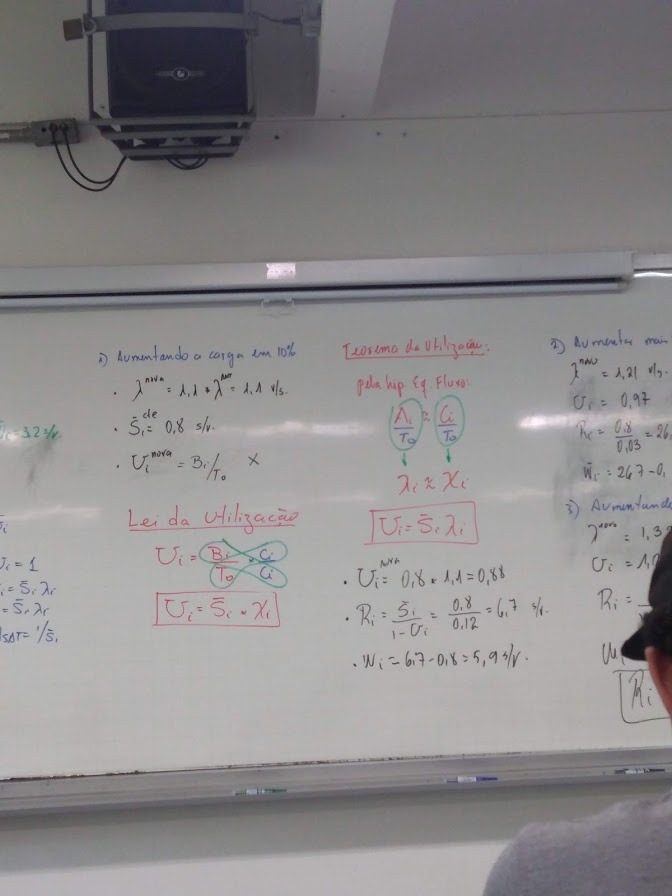 Ui = 3,2 s/r
Ui = 1
i = S̄i λi
= S̄i λi
SAT = 1/S̄i
1) Aumentando a carga em 10%
• λ^nova = 1,1 * λ = 1,1 r/s.
• S̄i^cte = 0,8 s/r.
• Ui^nova = Bi/T₀ X
Lei da Utilização
Ui = Bi/T₀ · Ci/Ci
Ui = S̄i * Xi
Teorema da Utilização:
pela hip. Eq. Fluxo:
Ai/T₀ ≈ Ci/T₀
λi ≈ Xi
Ui = S̄i λi
• Ui^nova = 0,8 * 1,1 = 0,88
• Ri = S̄i/1-Ui = 0,8/0,12 = 6,7 s/r.
• Wi = 6,7 - 0,8 = 5,9 s/r.
2) Aumentar mais
λ^novo = 1,21 r/s.
Ui = 0,97
Ri = 0,8/0,03 = 26,
Wi = 26,7 - 0,
3) Aumentando
λ^novo = 1,3
Ui = 1,0
Ri =
Wi
Ri